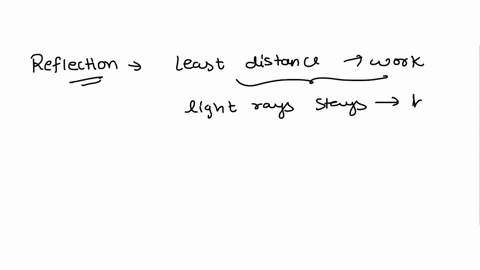 Reflection → Least distance → work
light rays stays →